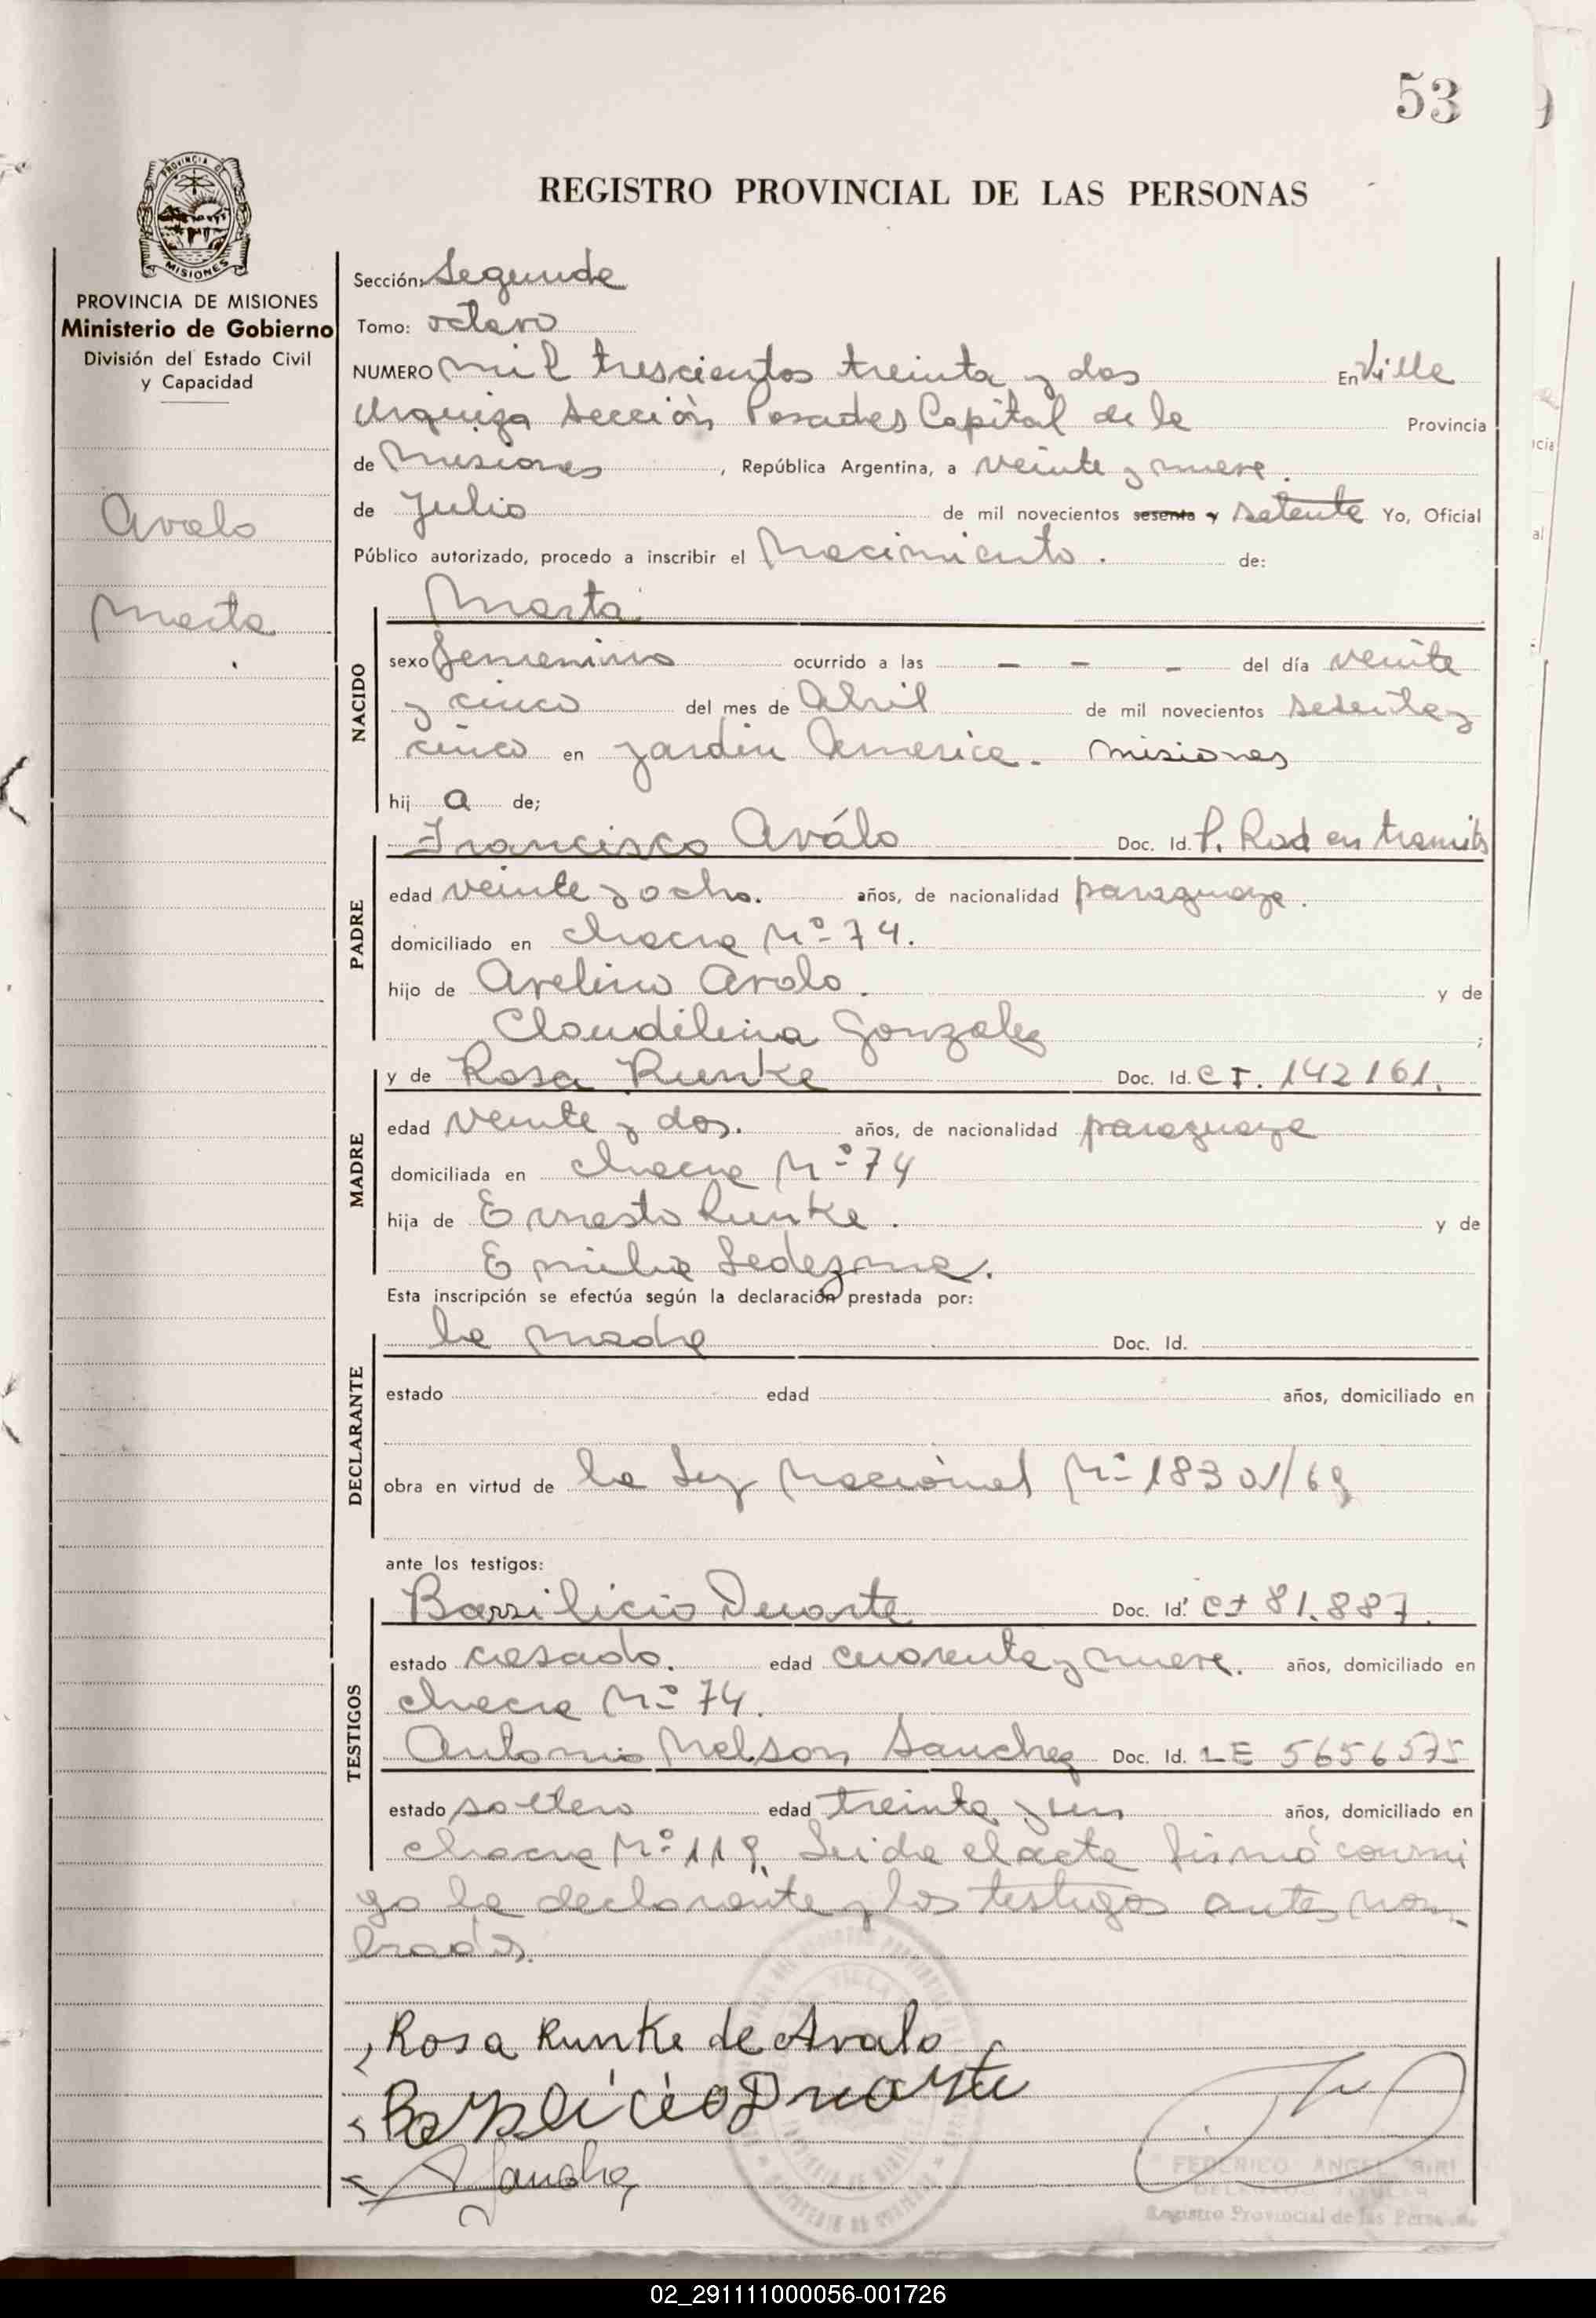 53
REGISTRO PROVINCIAL DE LAS PERSONAS
PROVINCIA DE MISIONES
Ministerio de Gobierno
División del Estado Civil
y Capacidad
Avalo
Marta
Sección: Segunda
Tomo: octavo
NUMERO mil trescientos treinta y dos En Villa
Urquiza Sección Posadas Capital de la Provincia
de Misiones, República Argentina, a veinte y nueve.
de Julio de mil novecientos sesenta y setenta Yo, Oficial
Público autorizado, procedo a inscribir el Nacimiento. de:
NACIDO
Marta
sexo femenino ocurrido a las - - - del día veinte
y cinco del mes de Abril de mil novecientos setenta y
cinco en Jardin America. Misiones
hij a de;
PADRE
Francisco Aválo Doc. Id. P. Rad en tramite
edad veinte y ocho. años, de nacionalidad paraguaya.
domiciliado en chacra Nº 74.
hijo de Avelino Avalo. y de
Claudelina Gonzalez;
MADRE
y de Rosa Runke Doc. Id. CI. 142161.
edad veinte y dos. años, de nacionalidad paraguaya
domiciliada en chacra Nº 74
hija de Ernesto Runke. y de
Emilia Ledezma.
Esta inscripción se efectúa según la declaración prestada por:
DECLARANTE
la madre Doc. Id.
estado edad años, domiciliado en
obra en virtud de la Ley Nacional Nº 18301/69
ante los testigos:
TESTIGOS
Barsilicio Duarte Doc. Id. CI 81.887.
estado casado. edad cuarenta y nueve. años, domiciliado en
chacra Nº 74.
Antonio Nelson Sanchez Doc. Id. LE 5656575
estado soltero edad treinta y un años, domiciliado en
chacra Nº 119. Leida el acta firmó conmi
go la declarante y los testigos antes nom
brados.
Rosa Runke de Avalo
Duarte
Sanchez
FEDERICO ANGEL
Registro Provincial de las Personas
02_291111000056-001726